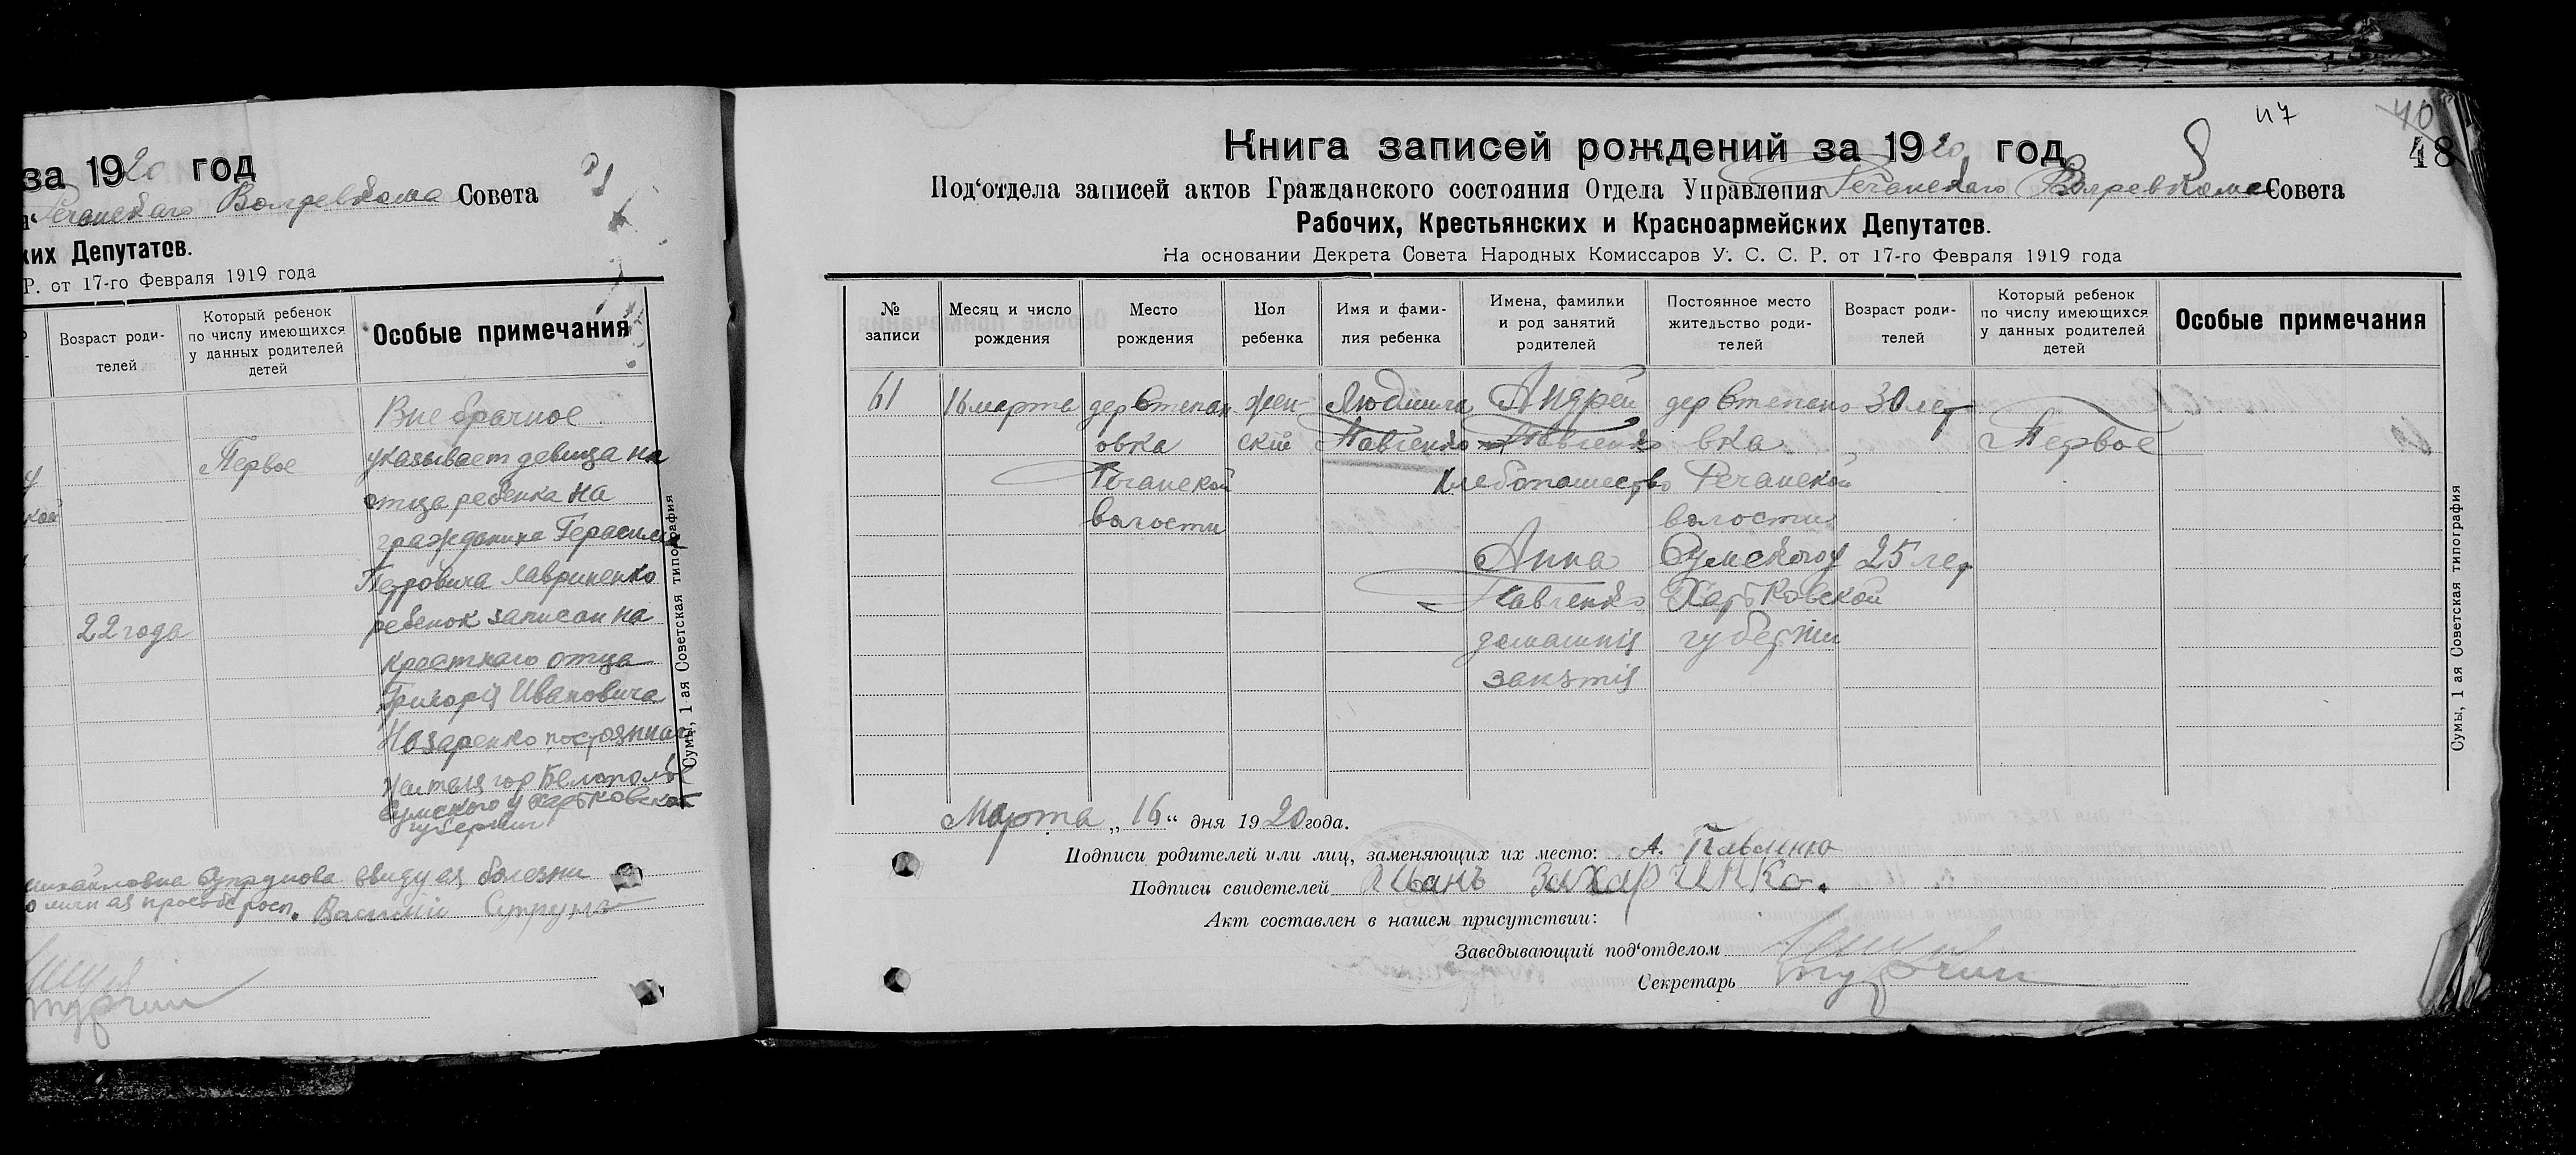 за 1920 год
Речанскаго Волревкома Совета
ких Депутатов.
Р. от 17-го Февраля 1919 года
Возраст роди-
телей
Который ребенок
по числу имеющихся
у данных родителей
детей
Особые примечания
22 года
Первое
Вне брачное
указывает девица на
отца ребенка на
гражданина Герасима
Петровича Лавриненко
ребенок записан на
крестнаго отца
Григорія Ивановича
Назаренко постоянный
жителя гор Белополье
Сумского у Харьковской
губернии
Сумы, 1-ая Советская типография
михайловна Супрунова ввиду ея болезни
личн ая просьбе росп. Василій Супрунъ
47
40
48
Книга записей рождений за 1920 год
Под'отдела записей актов Гражданского состояния Отдела Управления Речанскаго Волревкома Совета
Рабочих, Крестьянских и Красноармейских Депутатов.
На основании Декрета Совета Народных Комиссаров У. С. С. Р. от 17-го Февраля 1919 года
№
записи
Месяц и число
рождения
Место
рождения
Пол
ребенка
Имя и фами-
лия ребенка
Имена, фамилии
и род занятий
родителей
Постоянное место
жительство роди-
телей
Возраст роди-
телей
Который ребенок
по числу имеющихся
у данных родителей
детей
Особые примечания
61
16 марта
дер Степан
овка
Речанской
волости
жен-
скій
Людмила
Павленко
Андрей
Павленко
Хлебопашество
Анна
Павленко
домашнія
занятія
дер Степано
вка
Речанской
волости
Сумского у
Харьковской
губернии
30 лет
25 лет
Первое
Марта „16“ дня 1920 года.
Подписи родителей или лиц, заменяющих их место: А. Павленко
Подписи свидетелей Иванъ Захаринко.
Акт составлен в нашем присутствии:
Заведывающий под'отделом
Секретарь
Сумы, 1 ая Советская типография